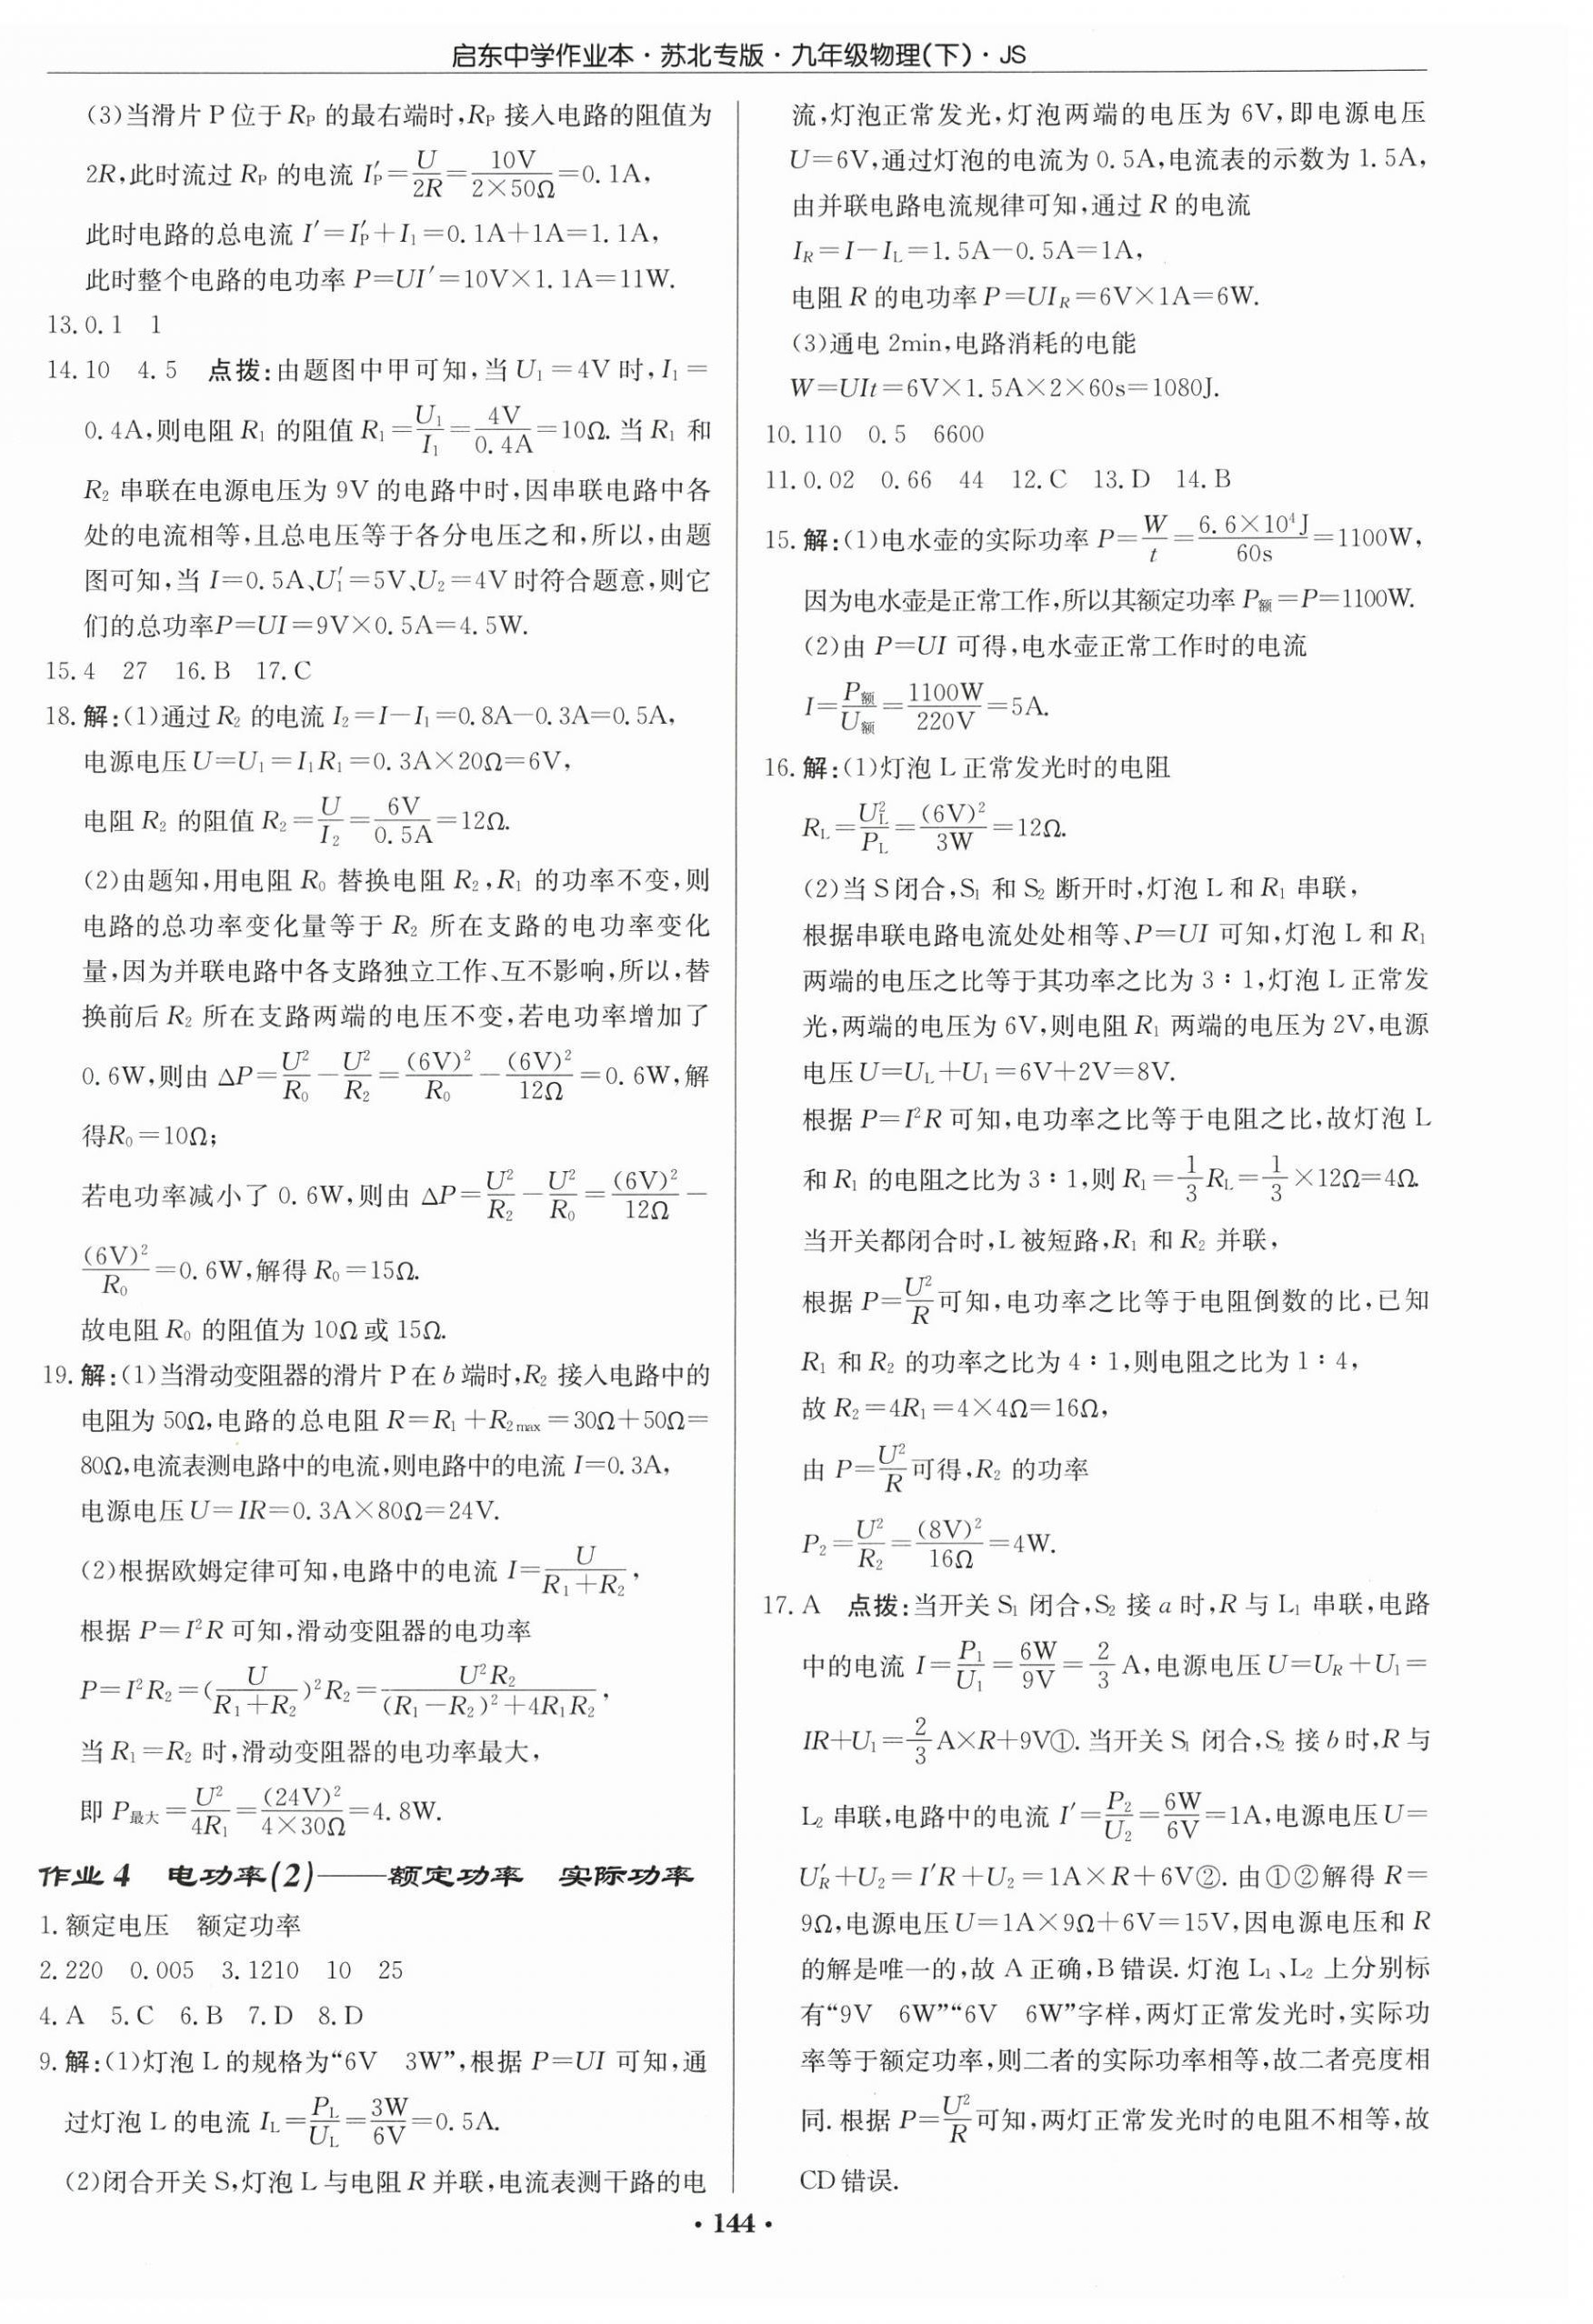 启东中学作业本·苏北专版·九年级物理(下)·JS
(3)当滑片 P 位于 R_P 的最右端时,R_P 接入电路的阻值为
2R,此时流过 R_P 的电流 I′_P=U/2R=10V/(2×50Ω)=0.1A,
此时电路的总电流 I′=I′_P+I₁=0.1A+1A=1.1A,
此时整个电路的电功率 P=UI′=10V×1.1A=11W.
13.0.1 1
14.10 4.5 点拨:由题图中甲可知,当 U₁=4V 时,I₁=
0.4A,则电阻 R₁ 的阻值 R₁=U₁/I₁=4V/0.4A=10Ω.当 R₁ 和
R₂ 串联在电源电压为 9V 的电路中时,因串联电路中各
处的电流相等,且总电压等于各分电压之和,所以,由题
图可知,当 I=0.5A、U′₁=5V、U₂=4V 时符合题意,则它
们的总功率P=UI=9V×0.5A=4.5W.
15.4 27 16.B 17.C
18.解:(1)通过 R₂ 的电流 I₂=I−I₁=0.8A−0.3A=0.5A,
电源电压 U=U₁=I₁R₁=0.3A×20Ω=6V,
电阻 R₂ 的阻值 R₂=U/I₂=6V/0.5A=12Ω.
(2)由题知,用电阻 R₀ 替换电阻 R₂,R₁ 的功率不变,则
电路的总功率变化量等于 R₂ 所在支路的电功率变化
量,因为并联电路中各支路独立工作、互不影响,所以,替
换前后 R₂ 所在支路两端的电压不变,若电功率增加了
0.6W,则由 △P=U²/R₀−U²/R₂=(6V)²/R₀−(6V)²/12Ω=0.6W,解
得R₀=10Ω;
若电功率减小了 0.6W,则由 △P=U²/R₂−U²/R₀=(6V)²/12Ω−
(6V)²/R₀=0.6W,解得 R₀=15Ω.
故电阻 R₀ 的阻值为 10Ω 或 15Ω.
19.解:(1)当滑动变阻器的滑片 P 在 b 端时,R₂ 接入电路中的
电阻为 50Ω,电路的总电阻 R=R₁+R₂max=30Ω+50Ω=
80Ω,电流表测电路中的电流,则电路中的电流 I=0.3A,
电源电压 U=IR=0.3A×80Ω=24V.
(2)根据欧姆定律可知,电路中的电流 I=U/(R₁+R₂),
根据 P=I²R 可知,滑动变阻器的电功率
P=I²R₂=(U/(R₁+R₂))²R₂=U²R₂/((R₁−R₂)²+4R₁R₂),
当 R₁=R₂ 时,滑动变阻器的电功率最大,
即 P最大=U²/4R₁=(24V)²/(4×30Ω)=4.8W.
作业 4 电功率(2)——额定功率 实际功率
1.额定电压 额定功率
2.220 0.005 3.1210 10 25
4.A 5.C 6.B 7.D 8.D
9.解:(1)灯泡 L 的规格为“6V 3W”,根据 P=UI 可知,通
过灯泡 L 的电流 I_L=P_L/U_L=3W/6V=0.5A.
(2)闭合开关 S,灯泡 L 与电阻 R 并联,电流表测干路的电
流,灯泡正常发光,灯泡两端的电压为 6V,即电源电压
U=6V,通过灯泡的电流为 0.5A,电流表的示数为 1.5A,
由并联电路电流规律可知,通过 R 的电流
I_R=I−I_L=1.5A−0.5A=1A,
电阻 R 的电功率 P=UI_R=6V×1A=6W.
(3)通电 2min,电路消耗的电能
W=UIt=6V×1.5A×2×60s=1080J.
10.110 0.5 6600
11.0.02 0.66 44 12.C 13.D 14.B
15.解:(1)电水壶的实际功率 P=W/t=6.6×10⁴J/60s=1100W,
因为电水壶是正常工作,所以其额定功率 P额=P=1100W.
(2)由 P=UI 可得,电水壶正常工作时的电流
I=P额/U额=1100W/220V=5A.
16.解:(1)灯泡 L 正常发光时的电阻
R_L=U_L²/P_L=(6V)²/3W=12Ω.
(2)当 S 闭合,S₁ 和 S₂ 断开时,灯泡 L 和 R₁ 串联,
根据串联电路电流处处相等、P=UI 可知,灯泡 L 和 R₁
两端的电压之比等于其功率之比为 3∶1,灯泡 L 正常发
光,两端的电压为 6V,则电阻 R₁ 两端的电压为 2V,电源
电压 U=U_L+U₁=6V+2V=8V.
根据 P=I²R 可知,电功率之比等于电阻之比,故灯泡 L
和 R₁ 的电阻之比为 3∶1,则 R₁=1/3 R_L=1/3×12Ω=4Ω.
当开关都闭合时,L 被短路,R₁ 和 R₂ 并联,
根据 P=U²/R 可知,电功率之比等于电阻倒数的比,已知
R₁ 和 R₂ 的功率之比为 4∶1,则电阻之比为 1∶4,
故 R₂=4R₁=4×4Ω=16Ω,
由 P=U²/R 可得,R₂ 的功率
P₂=U²/R₂=(8V)²/16Ω=4W.
17.A 点拨:当开关 S₁ 闭合,S₂ 接 a 时,R 与 L₁ 串联,电路
中的电流 I=P₁/U₁=6W/9V=2/3 A,电源电压 U=U_R+U₁=
IR+U₁=2/3 A×R+9V①.当开关 S₁ 闭合,S₂ 接 b 时,R 与
L₂ 串联,电路中的电流 I′=P₂/U₂=6W/6V=1A,电源电压 U=
U′_R+U₂=I′R+U₂=1A×R+6V②.由①②解得 R=
9Ω,电源电压 U=1A×9Ω+6V=15V,因电源电压和 R
的解是唯一的,故 A 正确,B 错误.灯泡 L₁、L₂ 上分别标
有“9V 6W”“6V 6W”字样,两灯正常发光时,实际功
率等于额定功率,则二者的实际功率相等,故二者亮度相
同.根据 P=U²/R 可知,两灯正常发光时的电阻不相等,故
CD 错误.
·144·